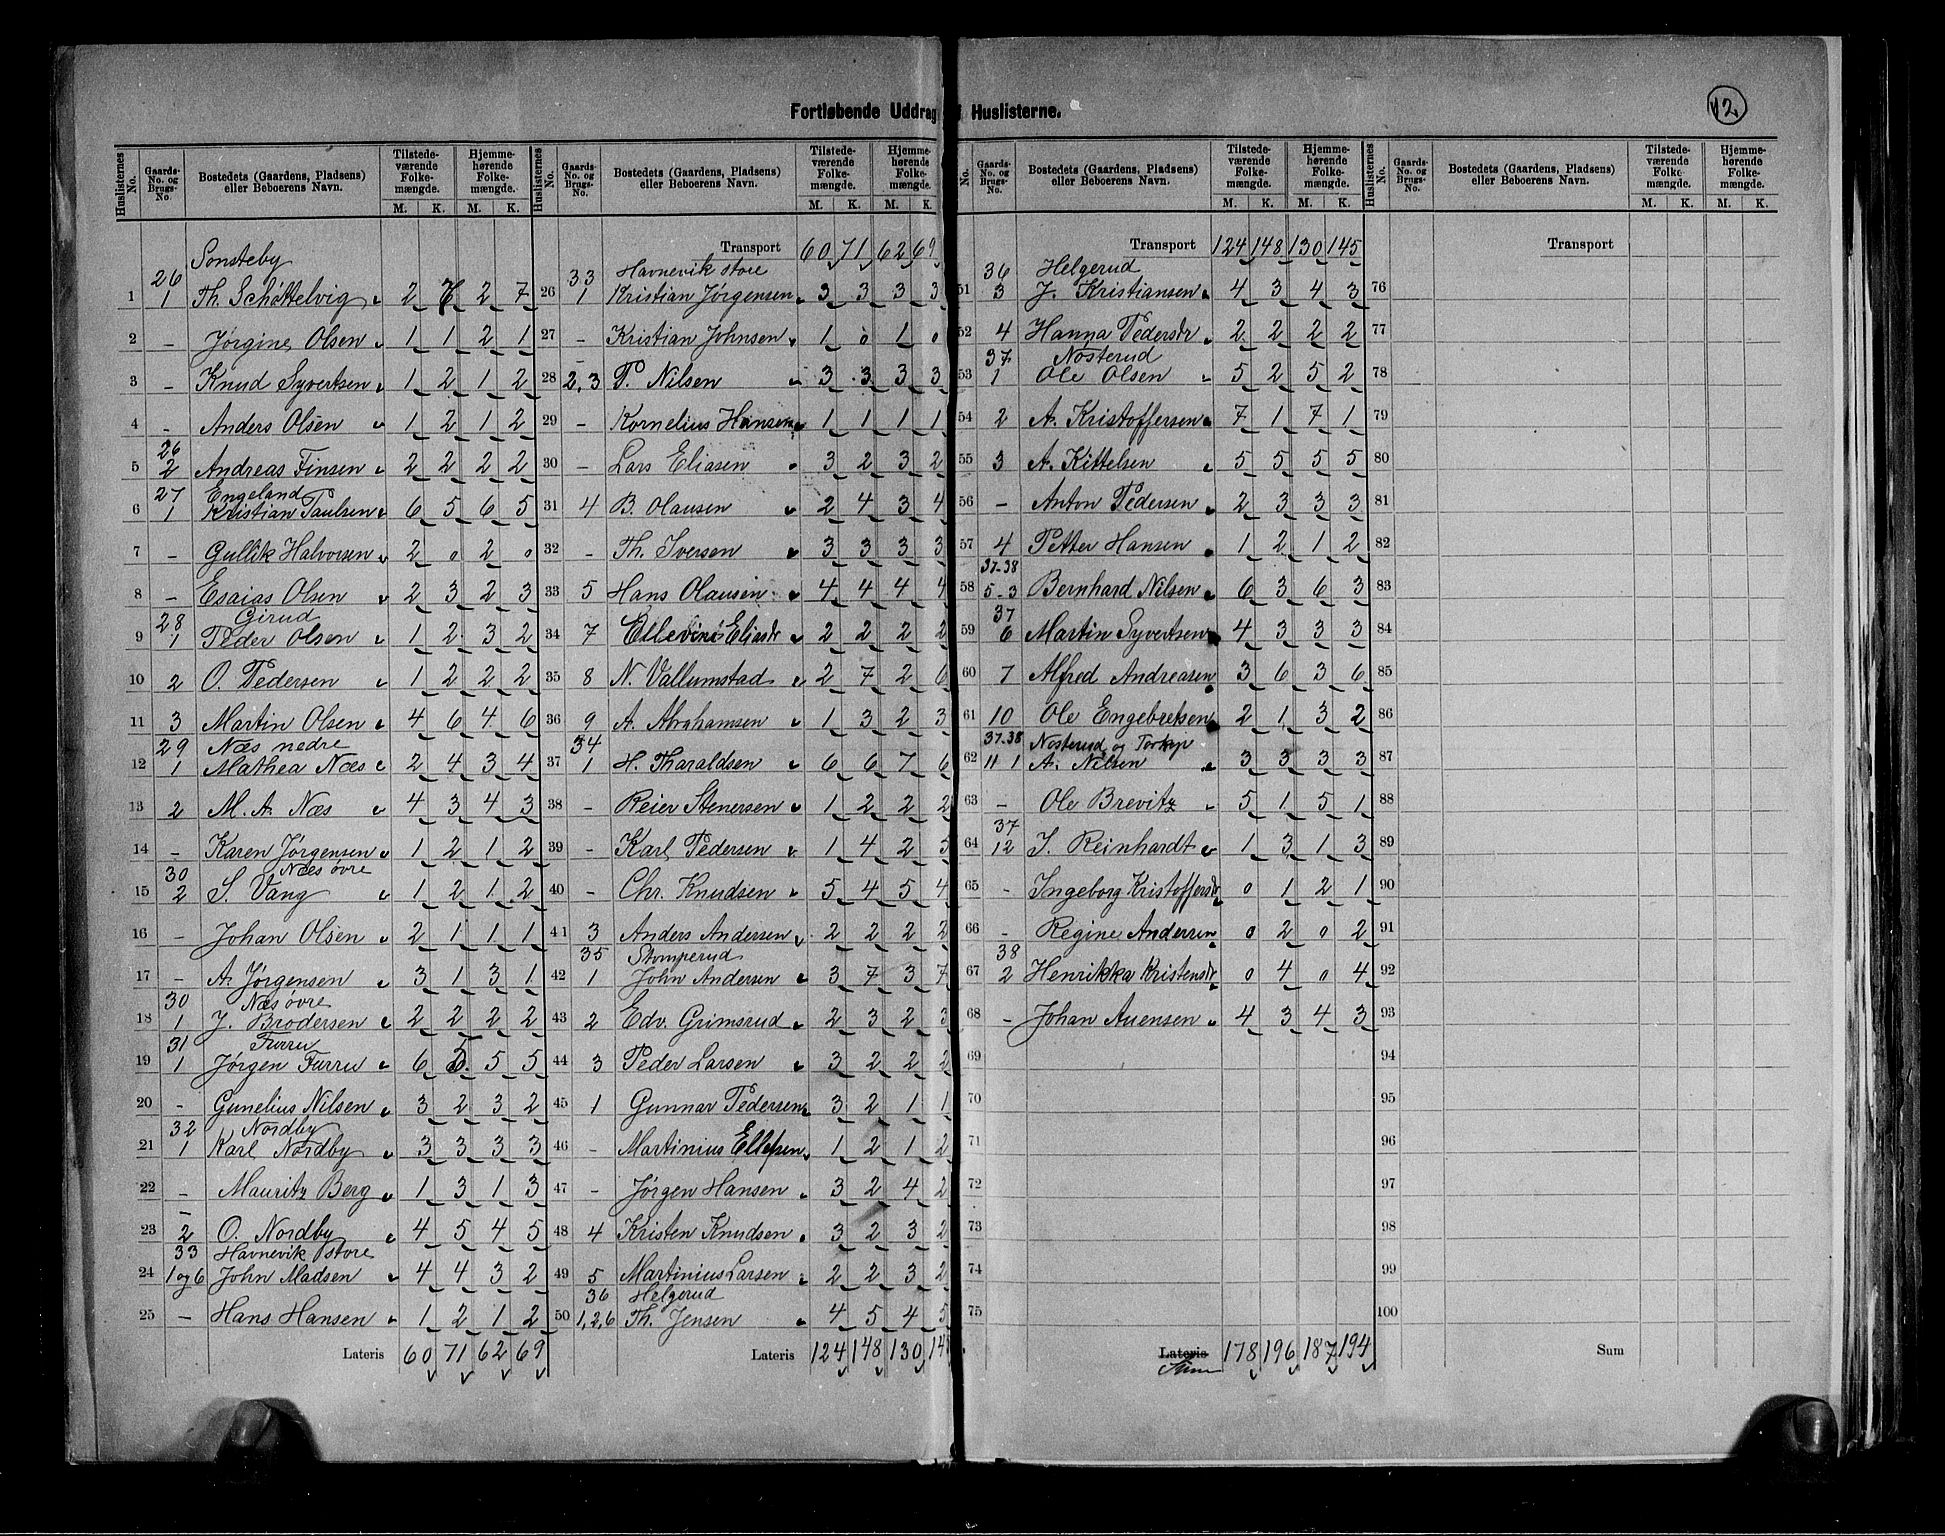 Fortløbende Uddrag Huslisterne.
12
Huslisternes No. Gaards-No. og Brugs-No. Bostedets (Gaardens, Pladsens) eller Beboerens Navn. Tilstede-værende Folke-mængde. M. K. Hjemme-hørende Folke-mængde. M. K.
26 Sonsteby
1 1 Th. Schøttelvig 2 7 2 7
2 - Jørgine Olsen 1 1 2 1
3 - Knud Syvertsen 1 2 1 2
4 - Anders Olsen 1 2 1 2
26
5 2 Andreas Finsen 2 2 2 2
27 Engeland
6 1 Kristian Paulsen 6 5 6 5
7 - Gullik Halvorsen 2 0 2 0
8 - Esaias Olsen 2 3 2 3
28 Girud
9 1 Peder Olsen 1 2 3 2
10 2 O. Pedersen 1 2 2 2
11 3 Martin Olsen 4 6 4 6
29 Næs nedre
12 1 Mathea Næs 2 4 3 4
13 2 M. A. Næs 4 3 4 3
14 - Karen Jørgensen 1 2 1 2
30 Næs øvre
15 2 S. Vang 1 2 1 2
16 - Johan Olsen 2 1 1 1
17 - A. Jørgensen 3 1 3 1
30 Næs øvre
18 1 J. Brodersen 2 2 2 2
31 Furru
19 1 Jørgen Furru 6 5 5 5
20 - Gunelius Nilsen 3 2 3 2
32 Nordby
21 1 Karl Nordby 3 3 3 3
22 - Mauritz Berg 1 3 1 3
23 2 O. Nordby 4 5 4 5
33 Havnevik store
24 1 og 6 John Madsen 4 4 3 2
25 - Hans Hansen 1 2 1 2
Lateris 60 71 62 69
Huslisternes No. Gaards-No. og Brugs-No. Bostedets (Gaardens, Pladsens) eller Beboerens Navn. Tilstede-værende Folke-mængde. M. K. Hjemme-hørende Folke-mængde. M. K.
Transport 60 71 62 69
33 Havnevik store
26 1 Kristian Jørgensen 3 3 3 3
27 - Kristian Johnsen 1 0 1 0
28 2,3 P. Nilsen 3 3 3 3
29 - Kornelius Hansen 1 1 1 1
30 - Lars Eliasen 3 2 3 2
31 4 B. Olausen 2 4 3 4
32 - Th. Iversen 3 3 3 3
33 5 Hans Olausen 4 4 4 4
34 7 Eliasdr 2 2 2 2
35 8 N. Vallumstad 2 7 2 6
36 9 A. Abrahamsen 1 3 2 3
34
37 1 H. Tharaldsen 6 6 7 6
38 - Reier Stenersen 1 2 2 2
39 - Karl Pedersen 1 4 2 5
40 - Chr. Knudsen 5 4 5 4
41 3 Anders Andersen 2 2 2 2
35 Stomperud
42 1 John Andersen 3 7 3 7
43 2 Edv. Grimsrud 2 3 2 3
44 3 Peder Larsen 3 2 2 2
45 1 Gunnar Pedersen 3 2 1 1
46 - Martinius Ellefsen 1 2 1 2
47 - Jørgen Hansen 3 2 4 2
48 4 Kristen Knudsen 3 2 3 2
49 5 Martinius Larsen 2 2 3 2
36 Helgerud
50 1,2,6 Th. Jensen 4 5 4 5
Lateris 124 148 130 14
No. Gaards-No. og Brugs-No. Bostedets (Gaardens, Pladsens) eller Beboerens Navn. Tilstede-værende Folke-mængde. M. K. Hjemme-hørende Folke-mængde. M. K.
Transport 124 148 130 145
36 Helgerud
51 3 J. Kristiansen 4 3 4 3
52 4 Hanna Pedersdr 2 2 2 2
37 Nosterud
53 1 Ole Olsen 5 2 5 2
54 2 A. Kristoffersen 7 1 7 1
55 3 A. Kittelsen 5 5 5 5
56 - Anton Pedersen 2 3 3 3
57 4 Petter Hansen 1 2 1 2
37-38
58 5-3 Bernhard Nilsen 6 3 6 3
37
59 6 Martin Syvertsen 4 3 3 3
60 7 Alfred Andreasen 3 6 3 6
61 10 Ole Engebretsen 2 1 3 2
37-38 Nosterud og Torkop
62 11 1 A. Nilsen 3 3 3 3
63 - Ole Brevitz 5 1 5 1
37
64 12 J. Reinhardt 1 3 1 3
65 - Ingeborg Kristoffersdr 0 1 2 1
66 - Regine Andersen 0 2 0 2
38
67 2 Henrikka Kristensdr 0 4 0 4
68 - Johan Auensen 4 3 4 3
69
70
71
72
73
74
75
Lateris Sum 178 196 187 194
Huslisternes No. Gaards-No. og Brugs-No. Bostedets (Gaardens, Pladsens) eller Beboerens Navn. Tilstede-værende Folke-mængde. M. K. Hjemme-hørende Folke-mængde. M. K.
Transport
76
77
78
79
80
81
82
83
84
85
86
87
88
89
90
91
92
93
94
95
96
97
98
99
100
Sum